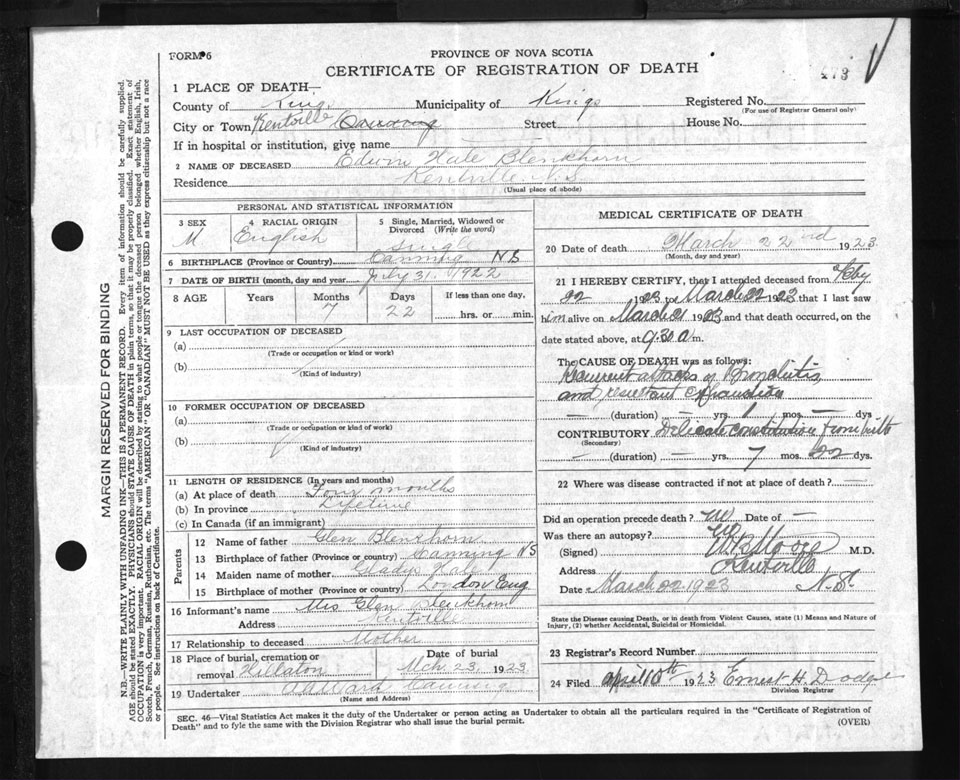 FORM 6
PROVINCE OF NOVA SCOTIA
CERTIFICATE OF REGISTRATION OF DEATH
473
1 PLACE OF DEATH—
County of Kings Municipality of Kings Registered No.
(For use of Registrar General only)
City or Town Kentville Canning Street House No.
If in hospital or institution, give name
2 NAME OF DECEASED Edwin Hale Blenkhorn
Residence Kentville N.S.
(Usual place of abode)
PERSONAL AND STATISTICAL INFORMATION
3 SEX M
4 RACIAL ORIGIN English
5 Single, Married, Widowed or Divorced (Write the word) Single
6 BIRTHPLACE (Province or Country) Canning NS
7 DATE OF BIRTH (month, day and year) July 31. 1922
8 AGE Years Months Days If less than one day,
7 22 hrs. or min.
9 LAST OCCUPATION OF DECEASED
(a)
(Trade or occupation or kind or work)
(b)
(Kind of industry)
10 FORMER OCCUPATION OF DECEASED
(a)
(Trade or occupation or kind of work)
(b)
(Kind of industry)
11 LENGTH OF RESIDENCE (In years and months)
(a) At place of death Four months
(b) In province Lifetime
(c) In Canada (if an immigrant)
Parents
12 Name of father Glen Blenkhorn
13 Birthplace of father (Province or country) Canning NS
14 Maiden name of mother Gladys Hale
15 Birthplace of mother (Province or country) London Eng
16 Informant's name Mrs Glen Blenkhorn
Address Kentville
17 Relationship to deceased Mother
18 Place of burial, cremation or removal Hillaton
Date of burial Mch. 23, 1923
19 Undertaker Ward Canning
(Name and Address)
MEDICAL CERTIFICATE OF DEATH
20 Date of death March 22nd 1923
(Month, day and year)
21 I HEREBY CERTIFY, that I attended deceased from
22 1923 to March 22 1923 that I last saw
him alive on March 21 1923 and that death occurred, on the
date stated above, at 9.30 a m.
The CAUSE OF DEATH was as follows:
Recurrent attacks of Bronchitis
and resultant
— (duration) — yrs. 1 mos. — dys.
CONTRIBUTORY Delicate constitution from birth
(Secondary)
— (duration) — yrs. 7 mos. 22 dys.
22 Where was disease contracted if not at place of death? —
Did an operation precede death? no Date of —
Was there an autopsy?
(Signed) M.D.
Address Kentville
Date March 22 1923 N.S.
State the Disease causing Death, or in death from Violent Causes, state (1) Means and Nature of
Injury, (2) whether Accidental, Suicidal or Homicidal.
23 Registrar's Record Number
24 Filed april 10th 1923 Ernest H. Dodge
Division Registrar
SEC. 46—Vital Statistics Act makes it the duty of the Undertaker or person acting as Undertaker to obtain all the particulars required in the "Certificate of Registration of
Death" and to fyle the same with the Division Registrar who shall issue the burial permit.
(OVER)
MARGIN RESERVED FOR BINDING
N.B.—WRITE PLAINLY WITH UNFADING INK—THIS IS A PERMANENT RECORD. Every item of information should be carefully supplied.
AGE should be stated EXACTLY. PHYSICIANS should STATE CAUSE OF DEATH in plain terms, so that it may be properly classified. Exact statement of
OCCUPATION is very important. RACIAL ORIGIN will be described by stating to what people or tongue the deceased person belonged whether English, Irish,
Scotch, French, German, Russian, Ruthenian, etc. The terms "AMERICAN" or "CANADIAN" MUST NOT BE USED as they express citizenship but not a race
or people. See instructions on back of Certificate.